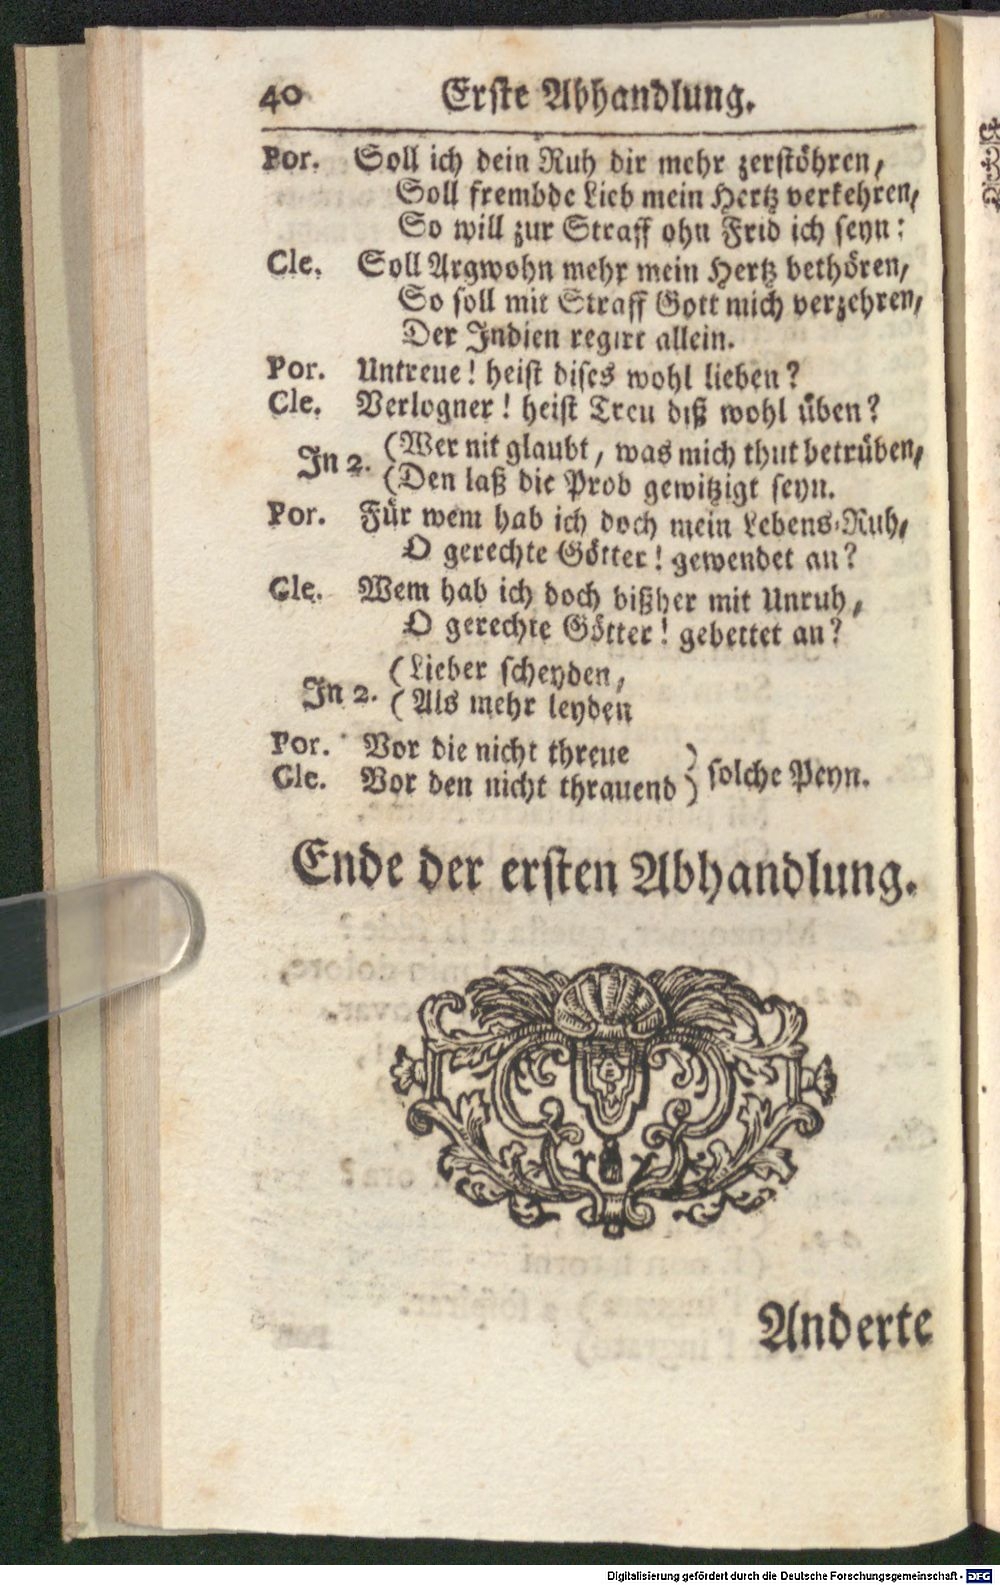 40 Erste Abhandlung.
Por. Soll ich dein Ruh dir mehr zerstöhren,
Soll frembde Lieb mein Hertz verkehren,
So will zur Straff ohn Frid ich seyn:
Cle. Soll Argwohn mehr mein Hertz bethören,
So soll mit Straff Gott mich verzehren,
Der Indien regirt allein.
Por. Untreue! heist dises wohl lieben?
Cle. Verlogner! heist Treu diß wohl üben?
In 2. (Wer nit glaubt, was mich thut betrüben,
(Den laß die Prob gewitzigt seyn.
Por. Für wem hab ich doch mein Lebens-Ruh,
O gerechte Götter! gewendet an?
Cle. Wem hab ich doch bißher mit Unruh,
O gerechte Götter! gebettet an?
In 2. (Lieber scheyden,
(Als mehr leyden
Por. Vor die nicht threue ) solche Peyn.
Cle. Vor den nicht thrauend )
Ende der ersten Abhandlung.
Anderte
Digitalisierung gefördert durch die Deutsche Forschungsgemeinschaft - DFG